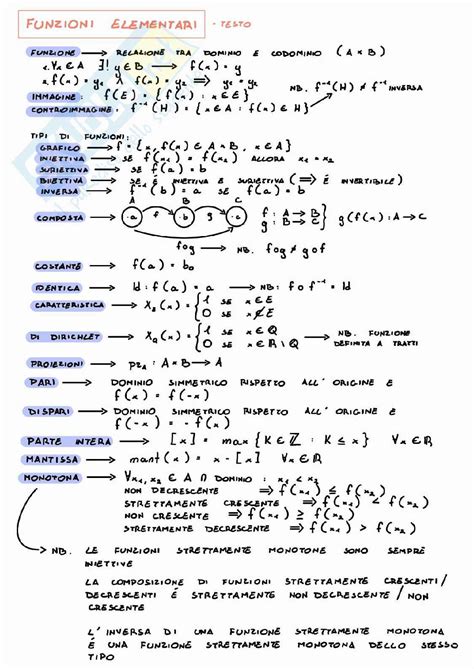 FUNZIONI ELEMENTARI - TESTO
FUNZIONE → RELAZIONE TRA DOMINIO E CODOMINIO (A×B)
1. ∀x∈A ∃! y∈B → f(x) = y
2. f(x) = y₁ ∧ f(x) = y₂ ⟹ y₁ = y₂
NB. f⁻¹(H) ≠ f⁻¹ INVERSA
IMMAGINE: f(E) = {f(x) : x∈E}
CONTROIMMAGINE: f⁻¹(H) = {x∈A : f(x)∈H}
TIPI DI FUNZIONI:
GRAFICO → f = {x, f(x) ∈ A×B, x∈A}
INIETTIVA → SE f(x₁) = f(x₂) ALLORA x₁ = x₂
SURIETTIVA → SE f(a) = b
BIIETTIVA → SE È INIETTIVA E SURIETTIVA (⟹ È INVERTIBILE)
INVERSA → f⁻¹(b) = a SE f(a) = b
A B C
COMPOSTA → a f b g a f: A→B g: B→C } g(f(x): A→C
fog → NB. fog ≠ gof
COSTANTE → f(a) = b₀
IDENTICA → Id: f(a) = a → NB: f o f⁻¹ = Id
CARATTERISTICA → X₂(x) = { 1 SE x∈E
0 SE x∉E
DI DIRICHLET → X_Q(x) = { 1 SE x∈Q
0 SE x∈R\Q → NB. FUNZIONE DEFINITA A TRATTI
PROIEZIONI → pz_A : A×B → A
PARI → DOMINIO SIMMETRICO RISPETTO ALL' ORIGINE E
f(-x) = f(x)
DISPARI → DOMINIO SIMMETRICO RISPETTO ALL' ORIGINE E
f(-x) = -f(x)
PARTE INTERA → [x] = max {K∈Z : K ≤ x} ∀x∈R
MANTISSA → mant(x) = x - [x] ∀x∈R
MONOTONA → ∀x₁, x₂ ∈ A ∩ DOMINIO : x₁ < x₂
NON DECRESCENTE ⟹ f(x₁) ≤ f(x₂)
STRETTAMENTE CRESCENTE ⟹ f(x₁) < f(x₂)
NON CRESCENTE ⟹ f(x₁) ≥ f(x₂)
STRETTAMENTE DECRESCENTE ⟹ f(x₁) > f(x₂)
NB. LE FUNZIONI STRETTAMENTE MONOTONE SONO SEMPRE
INIETTIVE
LA COMPOSIZIONE DI FUNZIONI STRETTAMENTE CRESCENTI/
DECRESCENTI È STRETTAMENTE NON DECRESCENTE / NON
CRESCENTE
L'INVERSA DI UNA FUNZIONE STRETTAMENTE MONOTONA
È UNA FUNZIONE STRETTAMENTE MONOTONA DELLO STESSO
TIPO